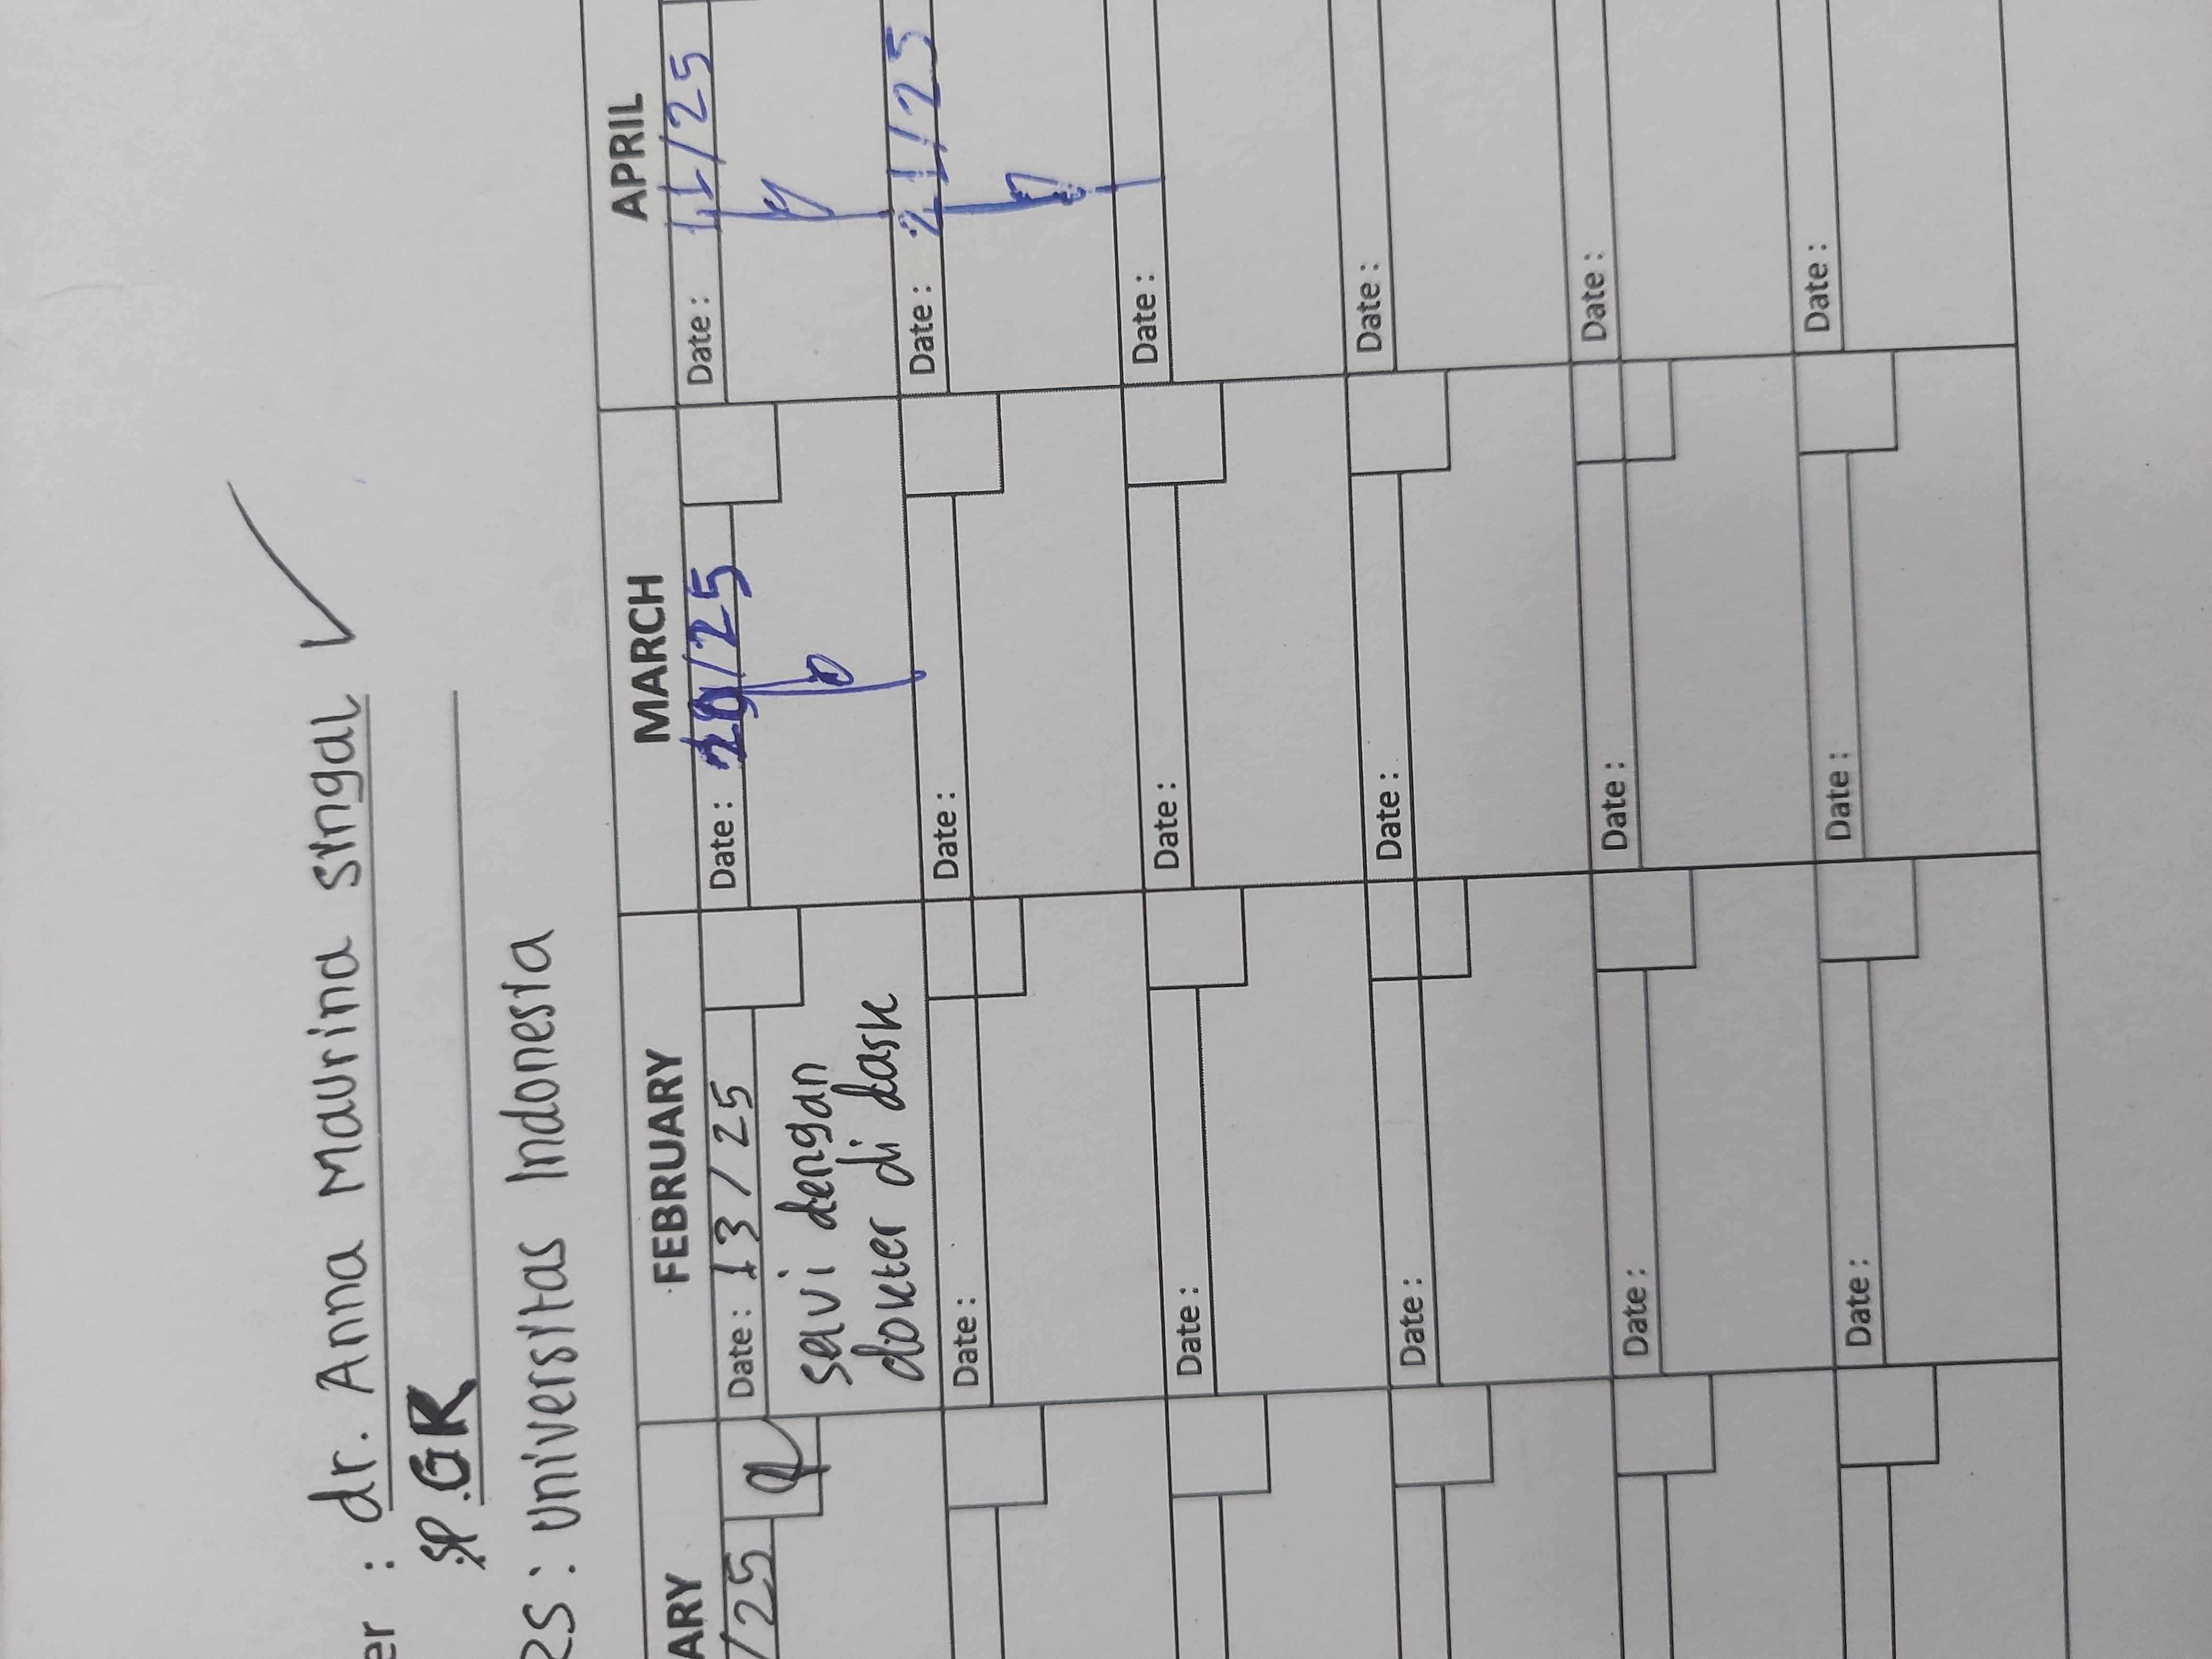 er : dr. Anna Maurina Singal
SP.GK
RS : Universitas Indonesia
ARY FEBRUARY MARCH APRIL
/25 Date : 13/25 Date : /25 Date : 11/25
savi dengan
dokter di dask
Date : Date : Date : 21/25
Date : Date : Date :
Date : Date : Date :
Date : Date : Date :
Date : Date : Date :